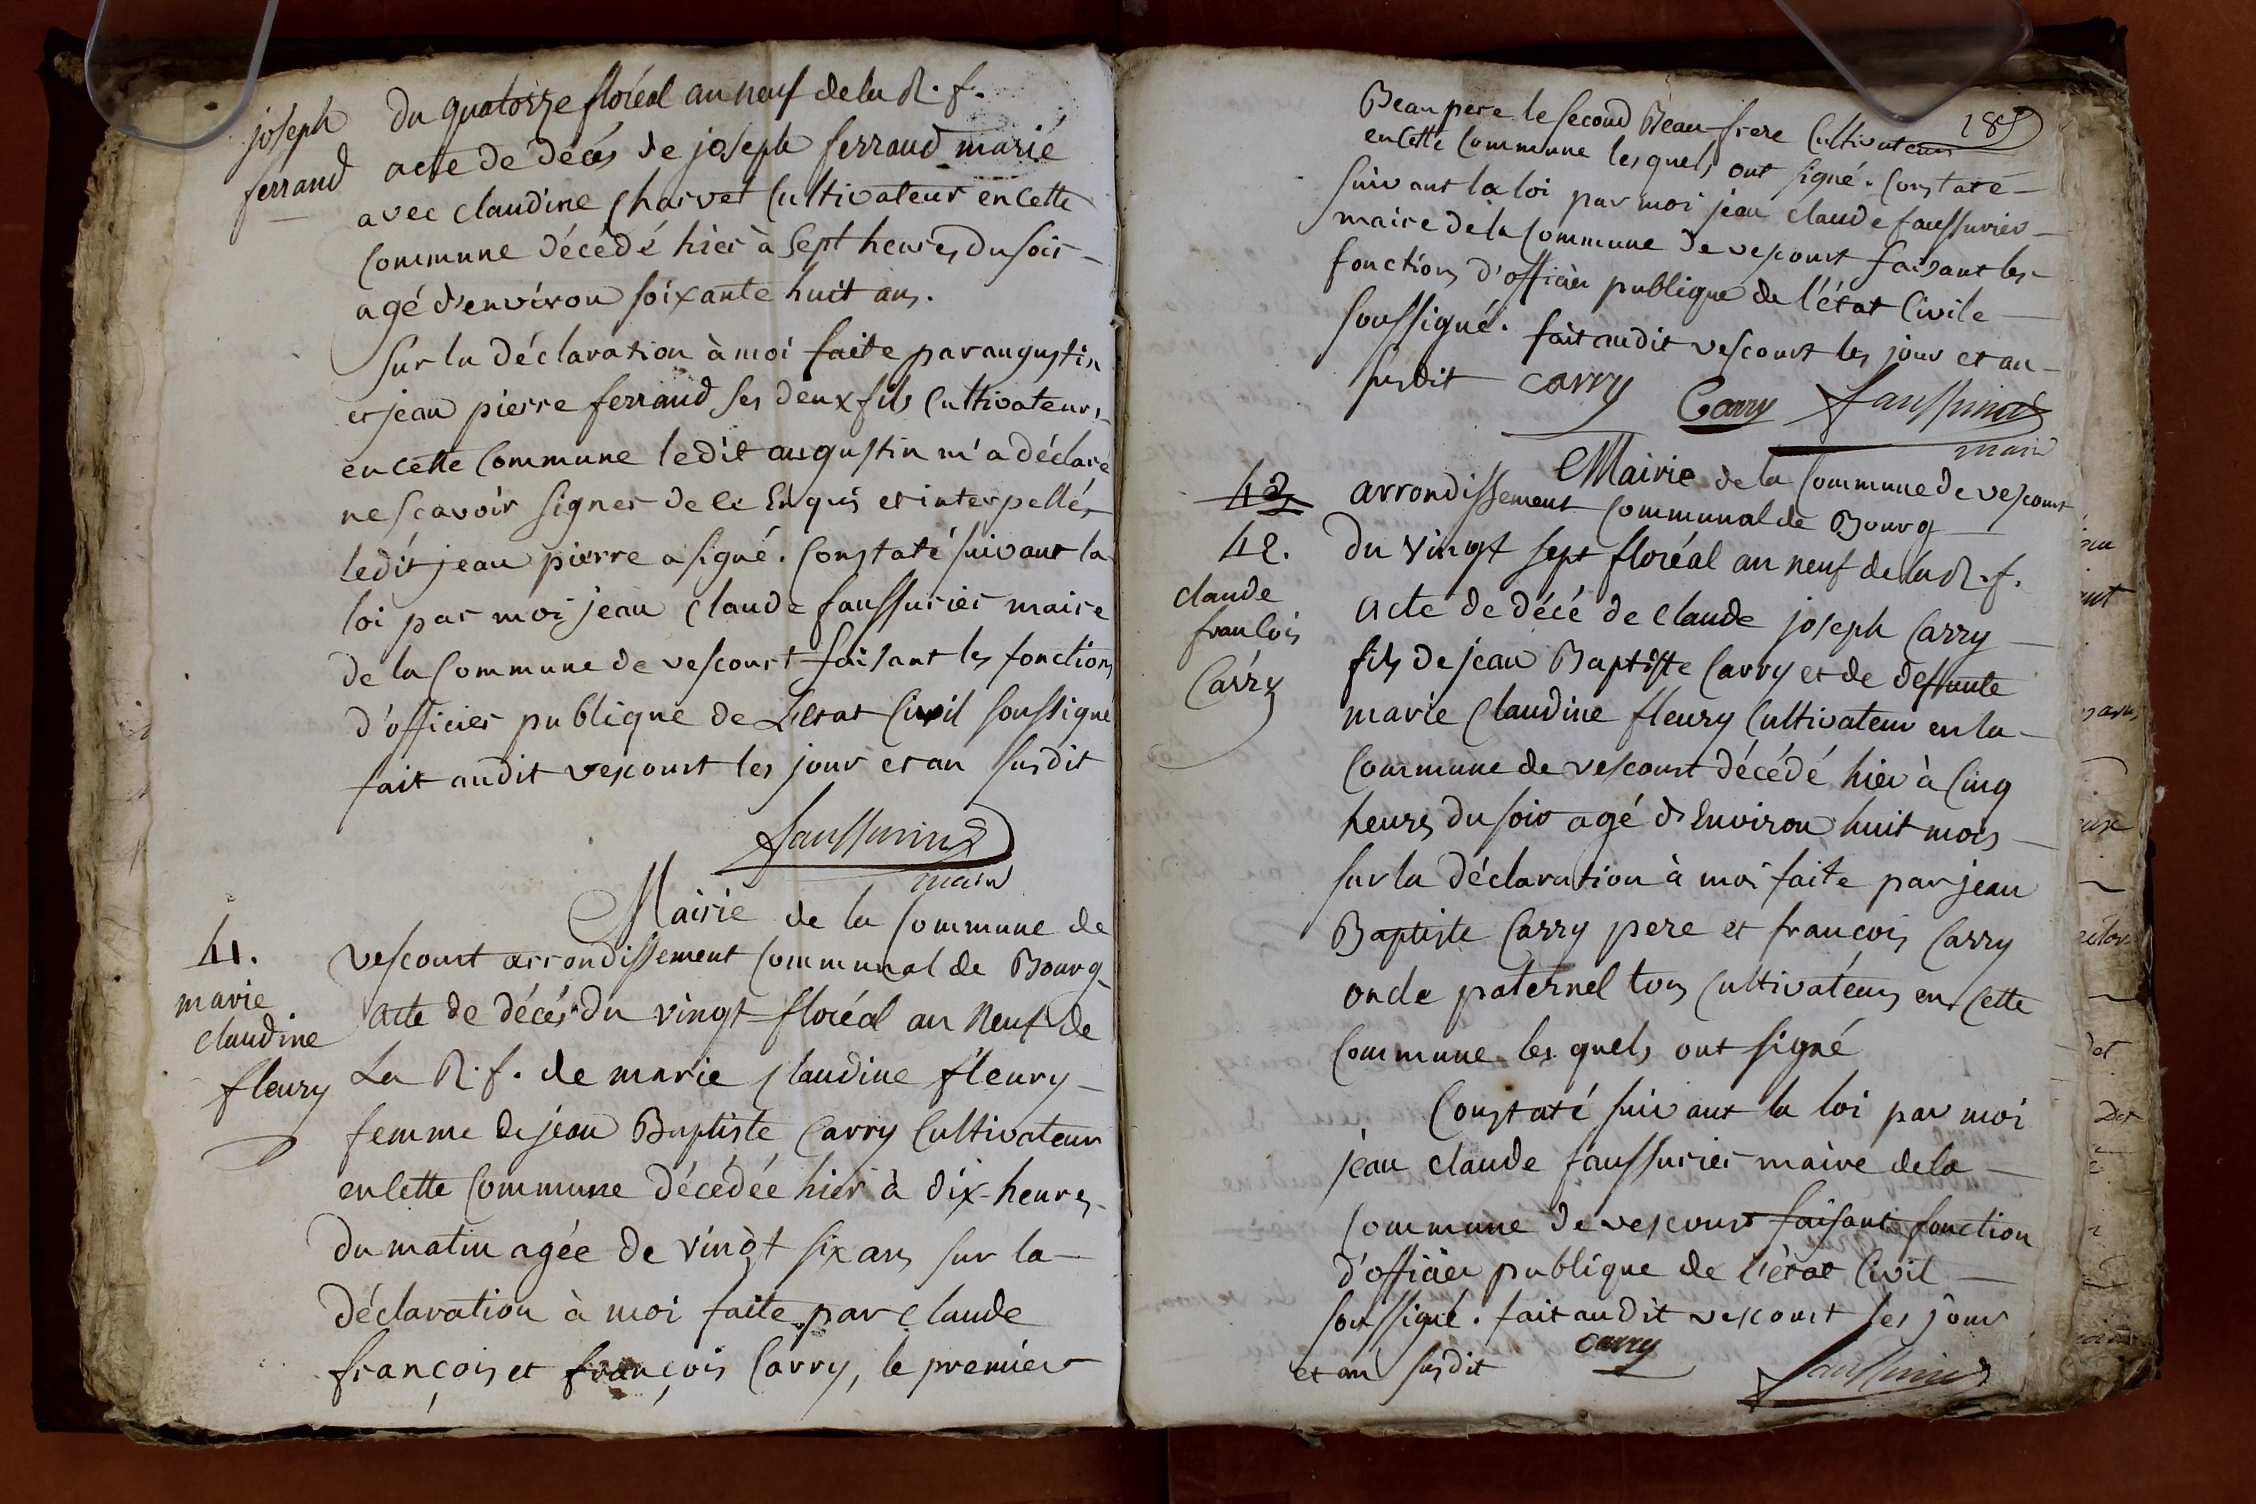 joseph
ferrand
du quatorze floréal an neuf de la R. f.
acte de décés de joseph ferrand marié
avec claudine Charvet Cultivateur en Cette
Commune décédé hier à Sept heures du soir –
agé d'environ soixante huit ans.
Sur la déclaration à moi faite par augustin
et jean pierre ferrand ses deux fils Cultivateurs
en cette Commune ledit augustin m'a déclaré
ne scavoir signer de ce Enquis et interpellés
ledit jean pierre a signé. Constaté suivant la
loi par moi jean Claude faussurier maire
de la Commune de vescourt faisant les fonctions
d'officier publique de L'etat Civil soussigné
fait audit vescourt les jour et an susdit
faussurier
maire
41.
marie
claudine
fleury
Mairie de la Commune de
vescourt arrondissement Communal de Bourg
acte de décés du vingt floréal an neuf de
La R. f. de marie Claudine fleury –
femme de jean Baptiste Carry Cultivateur
en Cette Commune décédée hier à dix heures
du matin agée de vingt six ans sur la –
déclaration à moi faite par Claude
françois et françois Carry, le premier
189
Beau pere le second Beau frere Cultivateurs
en Cette Commune lesquels ont signé. Constaté –
suivant la loi par moi jean Claude faussurier –
maire de la Commune de vescourt faisant les –
fonctions d'officier publique de l'état Civile –
soussigné. fait audit vescourt les jour et an –
susdit carry Carry faussurier
maire
43
42.
claude
francois
Carry
Mairie de la Commune de vescourt
arrondissement Communal de Bourg
du vingt sept floréal an neuf de la R. f.
acte de décé de Claude joseph Carry –
fils de jean Baptiste Carry et de deffunte
marie Claudine fleury Cultivateur en la –
Commune de vescourt décédé hier à Cinq
heures du soir agé d'Environ huit mois –
sur la déclaration à moi faite par jean
Baptiste Carry pere et francois Carry
oncle paternel tous Cultivateurs en Cette
Commune les quels ont signé
Constaté suivant la loi par moi
jean claude faussurier maire de la –
Commune de vescourt faisant fonction
d'officier publique de l'ètat Civil –
soussigné. fait audit vescourt les jour
et an susdit carry faussurier